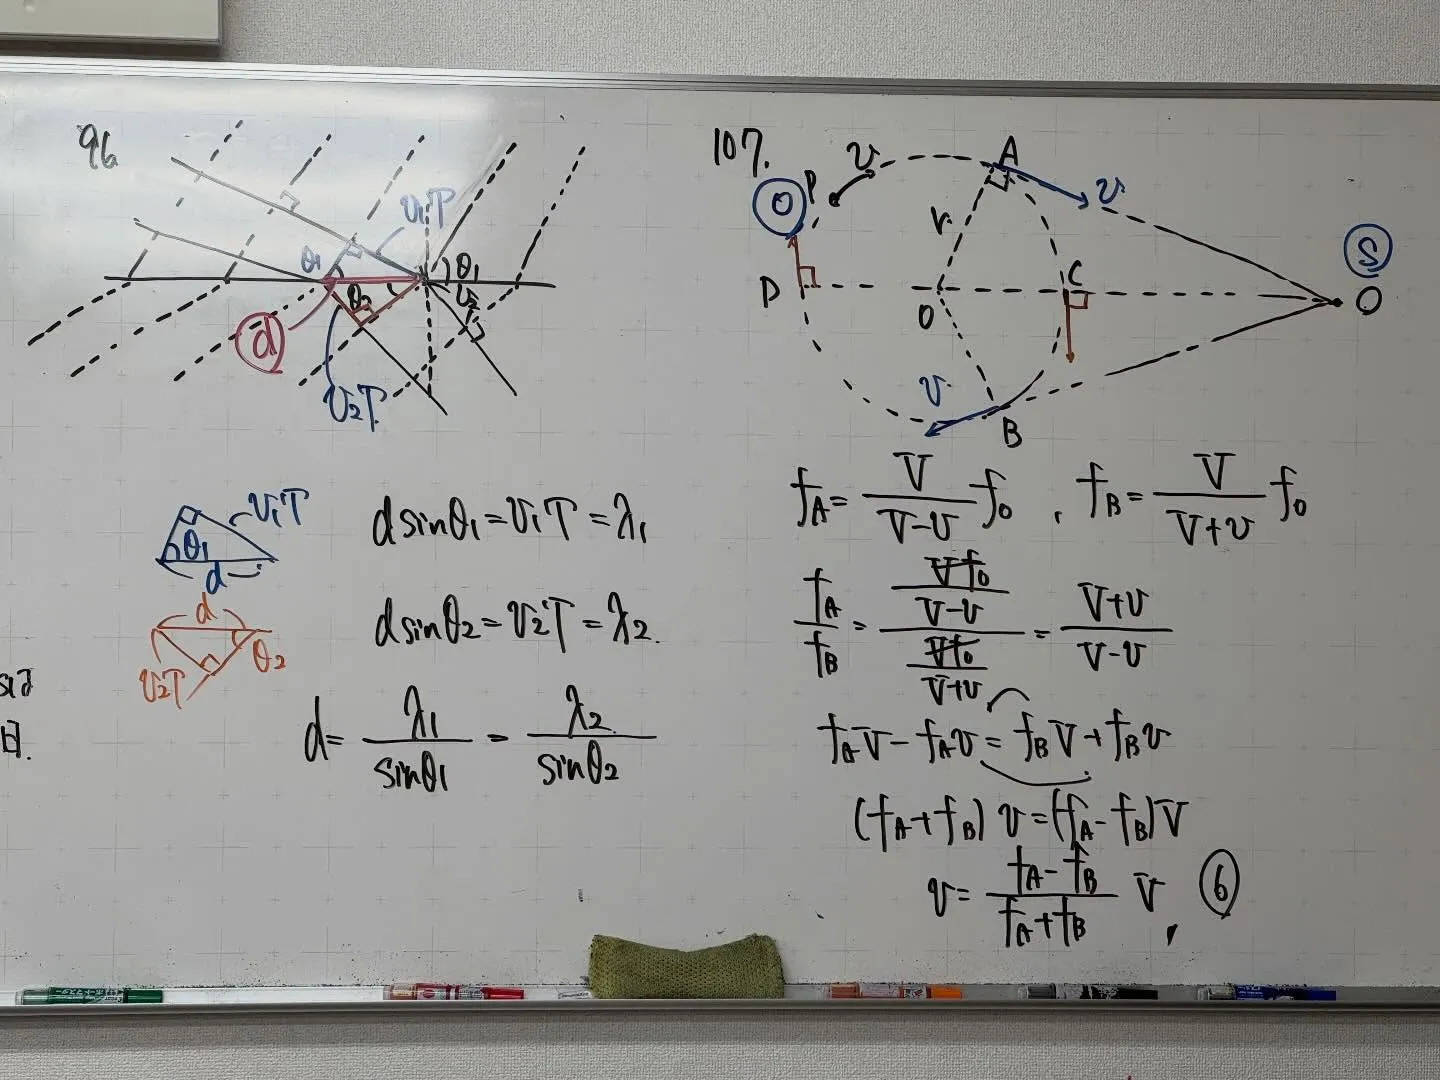 96
θ₁
v₁T
θ₁
θ₂
d
v₂T
v₁T
θ₁
d
d
θ₂
v₂T
d sinθ₁ = v₁T = λ₁
d sinθ₂ = v₂T = λ₂.
d = λ₁/sinθ₁ = λ₂/sinθ₂
日.
107.
A
v
v
P
O
r
S
C
D
O
Q
v
B
f_A = V/(V-v) f₀ , f_B = V/(V+v) f₀
f_A/f_B = (Vf₀/(V-v))/(Vf₀/(V+v)) = (V+v)/(V-v)
f_A V - f_A v = f_B V + f_B v
(f_A + f_B) v = (f_A - f_B) V
v = (f_A - f_B)/(f_A + f_B) V , ⑥